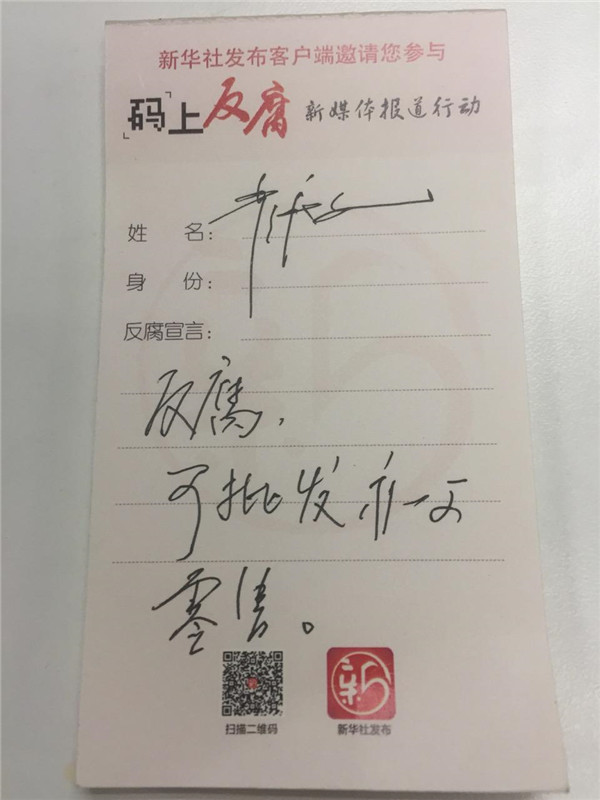 新华社发布客户端邀请您参与
「码」上反腐 新媒体报道行动
姓 名:
身 份:
反腐宣言:
反腐,
可批发亦可
零售。
扫描二维码
新华社发布